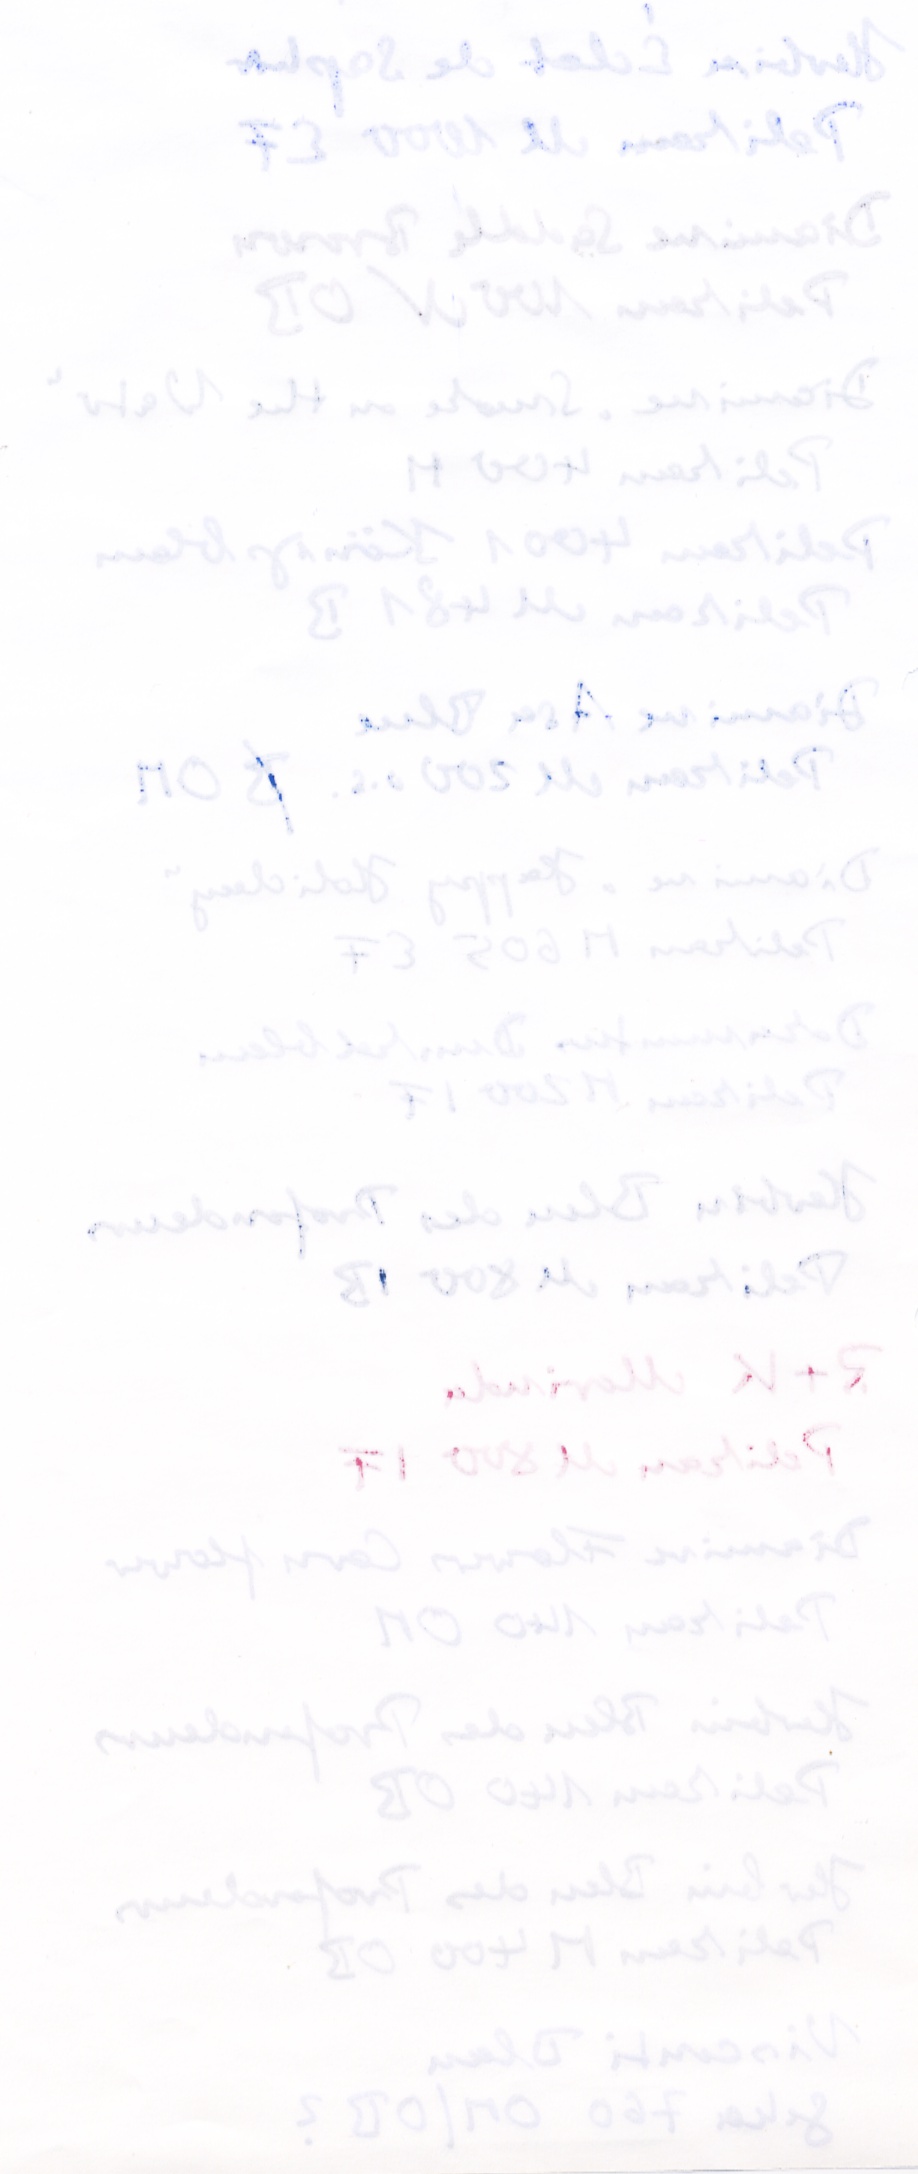 Herbin Éclat de Saphir
Pelikan M 1000 EF
Diamine Saddle Brown
Pelikan 100 N OB
Diamine "Smoke on the Water"
Pelikan 400 M
Pelikan 4001 Königsblau
Pelikan M 481 B
Diamine Asa Blue
Pelikan M 200 OM
Diamine "Happy Holiday"
Pelikan M 605 EF
Dokumentus Dunkelblau
Pelikan M 200 IF
Herbin Bleu des Profondeurs
Pelikan M 800 IB
R+K Morinda
Pelikan M 800 IF
Diamine Flower Cornflower
Pelikan 140 OM
Herbin Bleu des Profondeurs
Pelikan 140 OB
Herbin Bleu des Profondeurs
Pelikan M 400 OB
Visconti Blau
Geha 760 OM/OB?